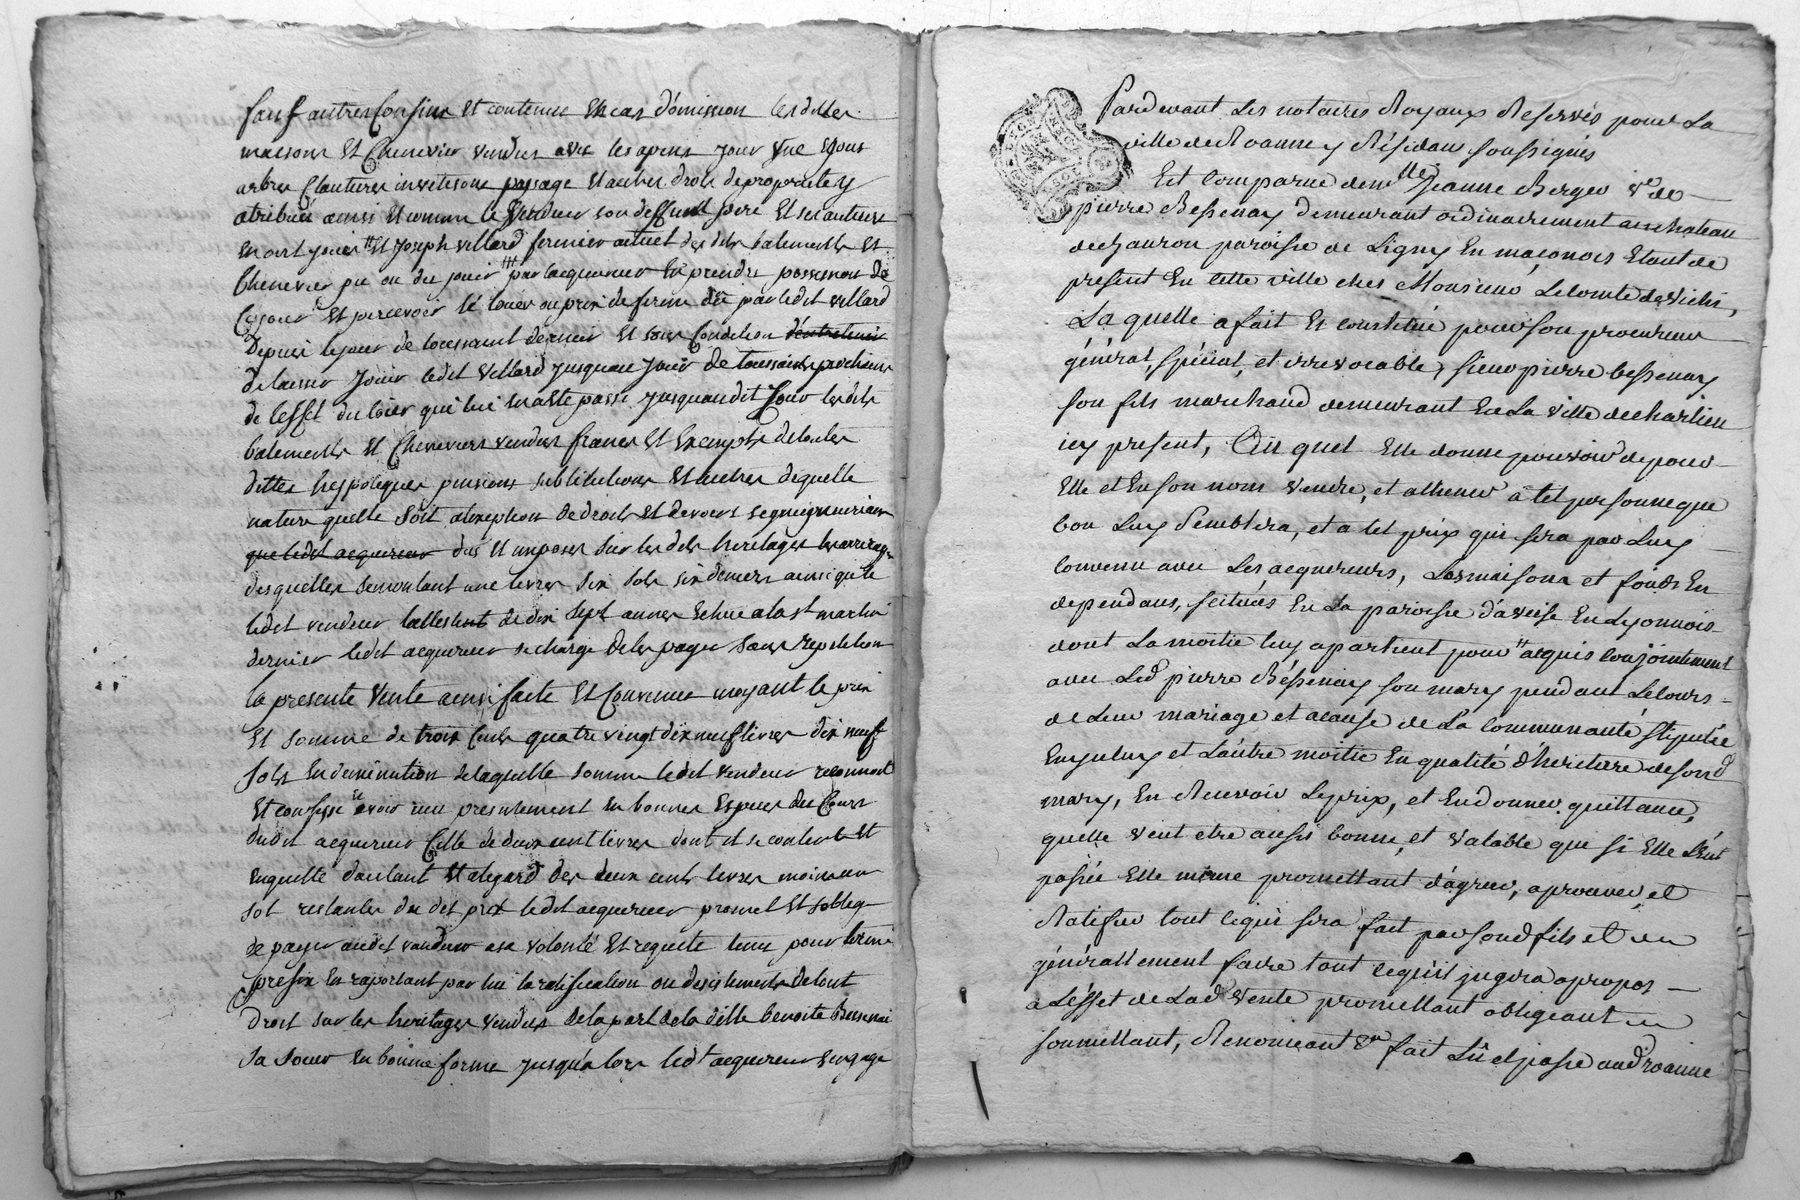 sauf autres Confins Et contenue En cas d'omission lesdittes
maisons Et Chenevier vendus avec les apens jour vue Egous
arbres Clautures investisons passage Et autres droits de propriete y
atribués ainsi Et comme le vendeur son deffunt pere Et ses auteurs
En ont joui Et joseph villard fermier actuel des dits batements Et
Chenevier pu ou du jouir par lacquereur En prendre possession de
Ce jour Et percevoir le loier ou prix de ferme dû par ledit villard
depuis le jour de toussaint dernier Et sous Condition d'entretenir
de laisser jouir ledit villard jusquau jour de toussaint prochain
de leffet du loier qui lui En a Eté passé jusquaudit jour lesdits
batements Et Cheneviers vendus francs Et Exempts de toutes
dettes hypoteques pensions substitutions Et autres dequelle
nature quelle soit alexeption de droits Et devoirs segneuriaux
que ledit acquereur dus Et imposés sur les dits heritages les arrerages
desquelles se montant une livres six sols six deniers ainsi que le
ledit vendeur de dix sept annes Echue a la st martin
dernier ledit acquereur se charge de les payer sans repetition
la presente vente ainsi faite Et Convenue moyant le prix
Et somme de trois Cents quatre vingt dix neuf livres dix neuf
sols En deminution de laquelle somme ledit vendeur reconnoit
Et confesse avoir recu presentement En bonnes Especes du Cours
dudit acquereur Celle de deux cent livres dont il se contente Et
Enquitte d'autant Et alegard des deux cents livres moins un
sol restantes du dit prix ledit acquereur promet Et soblige
de payer audit vandeur asa volonté Et requete terme pour terme
prefix En raportant par lui la ratification ou desistement de tout
droit sur les heritages vendus de la part de la ditte benoite Bessenai
sa soeur En bonne forme jusqu'a lors ledt acquereur Engage
Pardevant Les notaires Royaux Reservés pour La
ville de Roanne y Résidans soussignés
Est comparue demlle Jeanne Berger ve de
pierre Bessenay demeurant ordinairement au chateau
de chauron paroisse de Ligny En maconois Etant de
present En cette ville ches Monsieur Lecomte de vichi,
Laquelle a fait Et constitué pour son procureur
général, spécial, et irrevocable, sieur pierre bessenay
son fils marchand demeurant En La ville de charlieu
icy present, Au quel Elle donne pouvoir de pour
Elle et En son nom vendre, et alliener a tel personne que
bon Luy semblera, et a tel prix qui sera par Luy
Convenu avec Les acquereurs, Les maisons et fonds En
dependans, scitués En La paroisse d'aveise En Lyonnois
dont La moitié luy apartient pour acquis conjointement
avec Led pierre Béssenay son mary pendant Le cours
de Leur mariage et a cause de La communauté stipulée
Enyceluy et Lautre moitié En qualité d'heritiere de sond
mary, En Recevoir Le prix, et En donner quittance,
quelle veut etre aussi bonne, et valable que si Elle L'eut
passée Elle même promettant d'agréer, aprouver, et
Ratifier tout ce qui sera fait par sond fils et en
générallement faire tout ce qu'il jugera apropos
a Leffet de Lad vente promettant obligeant en
soumettant, Renonceant &n fait Lû et passé aud roanne